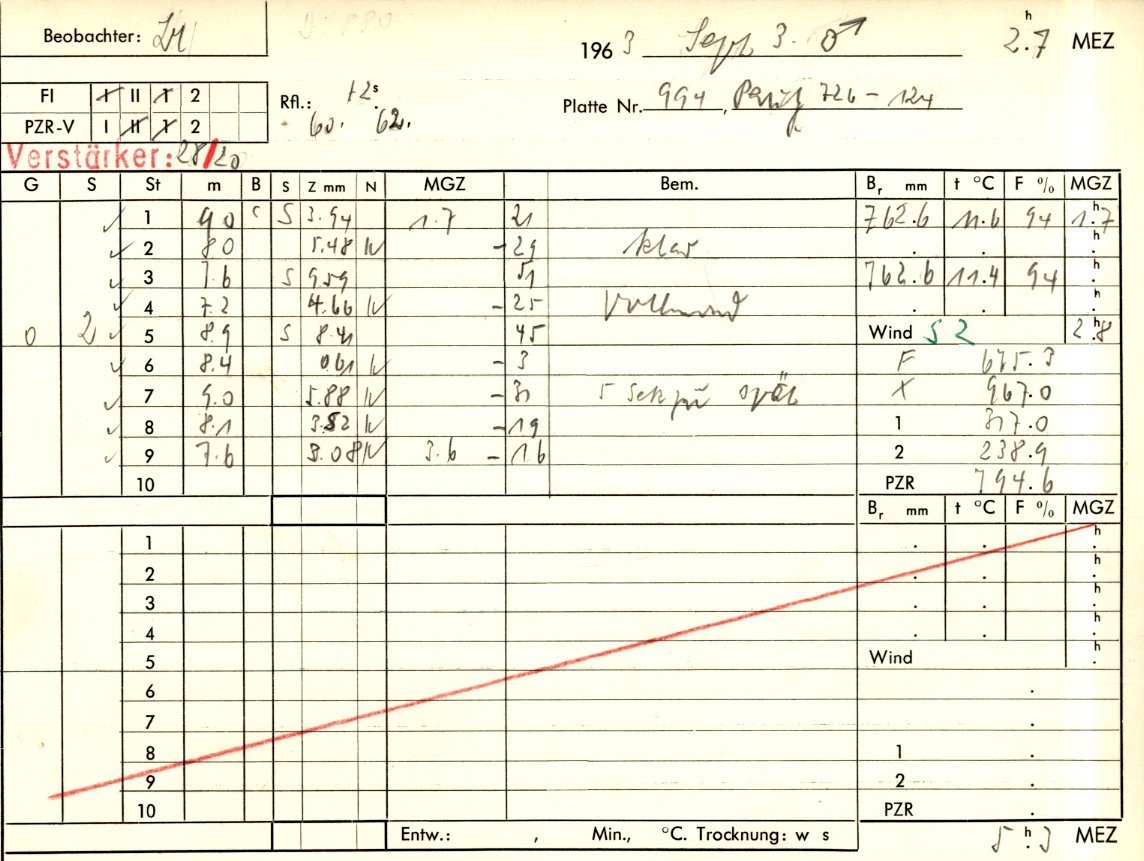 Beobachter:
1963 Sept 3. ♂ 2.7 h MEZ
FI I II 1 2
PZR-V I II 1 2
Rfl.: +2 s
60. 62.
Platte Nr. 994, 726 - 124
Verstärker: 28/20
G S St m B S Z mm N MGZ Bem. Br mm t °C F % MGZ
1 9.0 c S 3.94 1.7 21 762.6 11.6 94 1.7 h
2 8.0 5.48 N -29 klar . . h
3 7.6 S 9.59 51 762.6 11.4 94 h
4 7.2 4.66 N -25 Vollmond . . h
0 2 5 8.9 S 8.41 45 Wind S 2 2.8 h
6 8.4 0.61 N -3 F 675.3
7 9.0 5.88 N -31 5 Sek zu spät X 967.0
8 8.1 3.52 N -19 1 317.0
9 7.6 3.08 N 3.6 -16 2 238.9
10 PZR 794.6
Br mm t °C F % MGZ
1 . . h
2 . . h
3 . . h
4 . . h
5 Wind h
6 .
7 .
8 1 .
9 2 .
10 PZR .
Entw.: , Min., °C. Trocknung: w s 5.3 h MEZ